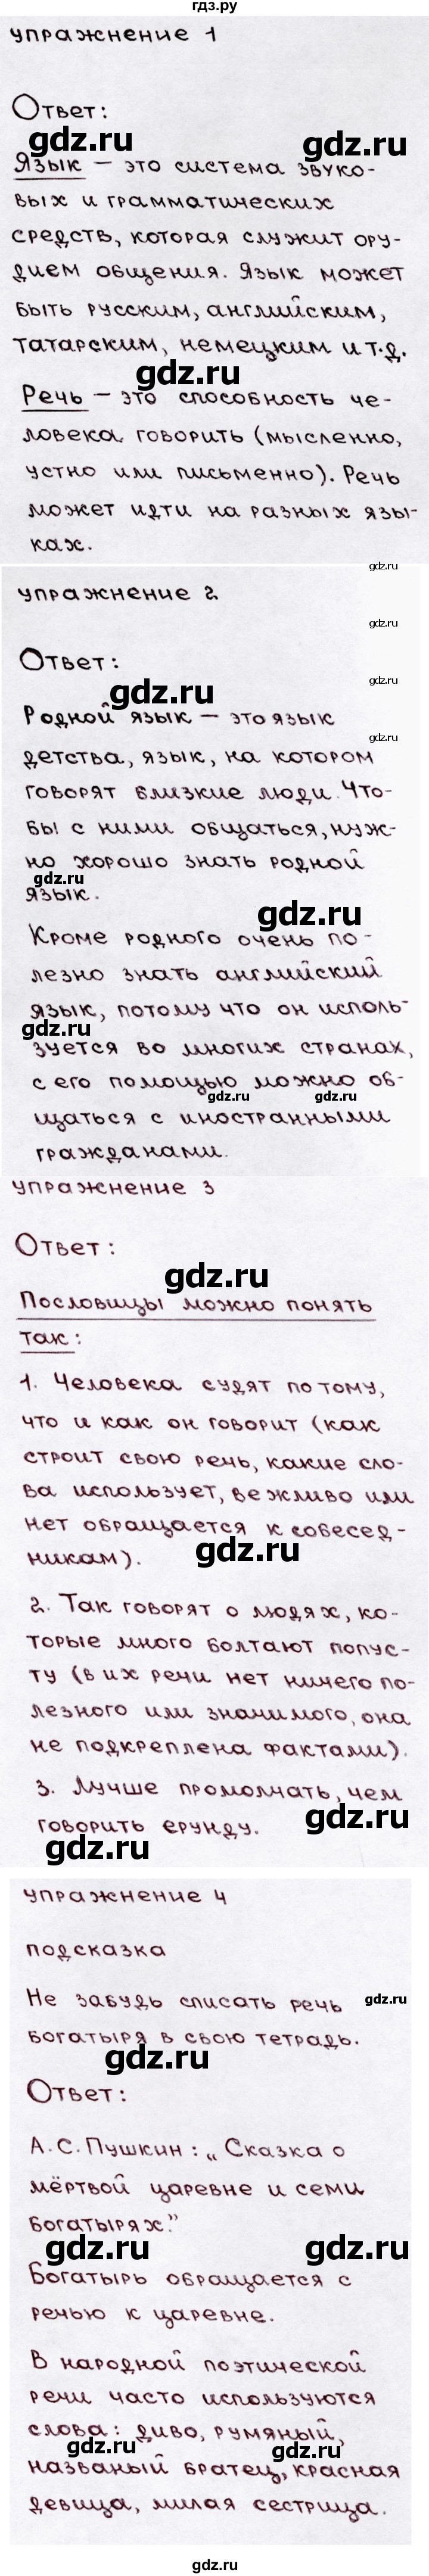 гдз.ру
упражнение 1
Ответ:
gdz.ru gdz.ru
Язык – это система звуко-
вых и грамматических
средств, которая служит ору-
дием общения. Язык может
быть русским, английским,
татарским, немецким и т.д.
gdz.ru
Речь – это способность че-
ловека говорить (мысленно,
устно или письменно). Речь
может идти на разных язы-
ках.
gdz.ru
упражнение 2
gdz.ru
Ответ:
gdz.ru
gdz.ru
Родной язык – это язык
gdz.ru
детства, язык, на котором
говорят близкие люди. Что-
бы с ними общаться, нуж-
но хорошо знать родной
gdz.ru
язык.
gdz.ru
Кроме родного очень по-
лезно знать английский
язык, потому что он исполь-
gdz.ru
зуется во многих странах,
с его помощью можно об-
gdz.ru gdz.ru
щаться с иностранными
гражданами.
упражнение 3
Ответ:
gdz.ru
Пословицы можно понять
так:
1. Человека судят по тому,
что и как он говорит (как
строит свою речь, какие сло-
ва использует, вежливо или
нет обращается к собесед-
gdz.ru
никам).
2. Так говорят о людях, ко-
торые много болтают попус-
ту (в их речи нет ничего по-
лезного или значимого, она
не подкреплена фактами).
3. Лучше промолчать, чем
gdz.ru
говорить ерунду.
gdz.ru
упражнение 4
подсказка
Не забудь списать речь
gdz.ru
богатыря в свою тетрадь.
gdz.ru
Ответ:
А.С. Пушкин: „Сказка о
мёртвой царевне и семи
богатырях."
gdz.ru gdz.ru
Богатырь обращается с
речью к царевне.
В народной поэтической
речи часто используются
слова: диво, румяный,
gdz.ru gdz.ru
названый братец, красная
девица, милая сестрица.
gdz.ru